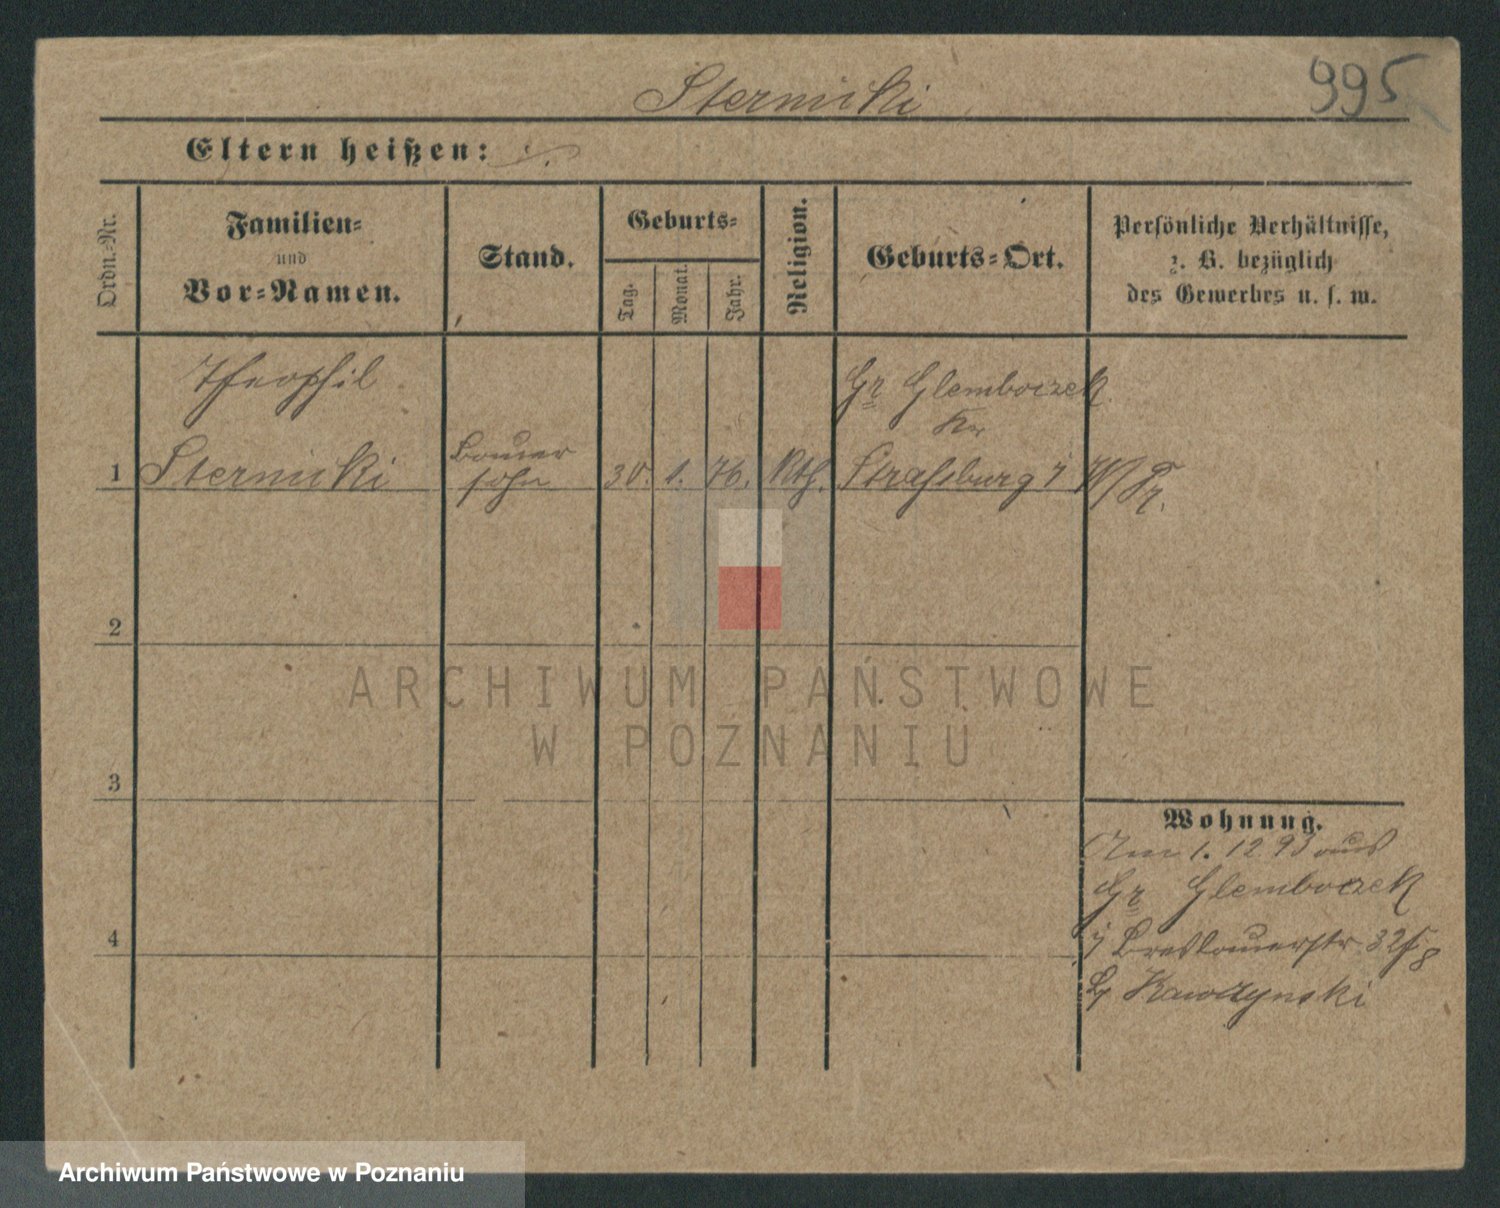 Sternicki
995
Eltern heißen: ./.
Ordn.-Nr.
Familien-
und
Vor-Namen.
Stand.
Geburts-
Tag.
Monat.
Jahr.
Religion.
Geburts-Ort.
Persönliche Verhältnisse,
z. B. bezüglich
des Gewerbes u. s. w.
Theophil
Gr Glemboczek
Kr
1 Sternicki
Bauer
sohn
30. 1. 76. Kth. Strassburg i W/Pr.
2
3
4
Wohnung.
Am 1. 12 93 aus
Gr Glemboczek
Breslauerstr. 32
b/ Kawczynski
ARCHIWUM PAŃSTWOWE
W POZNANIU
Archiwum Państwowe w Poznaniu